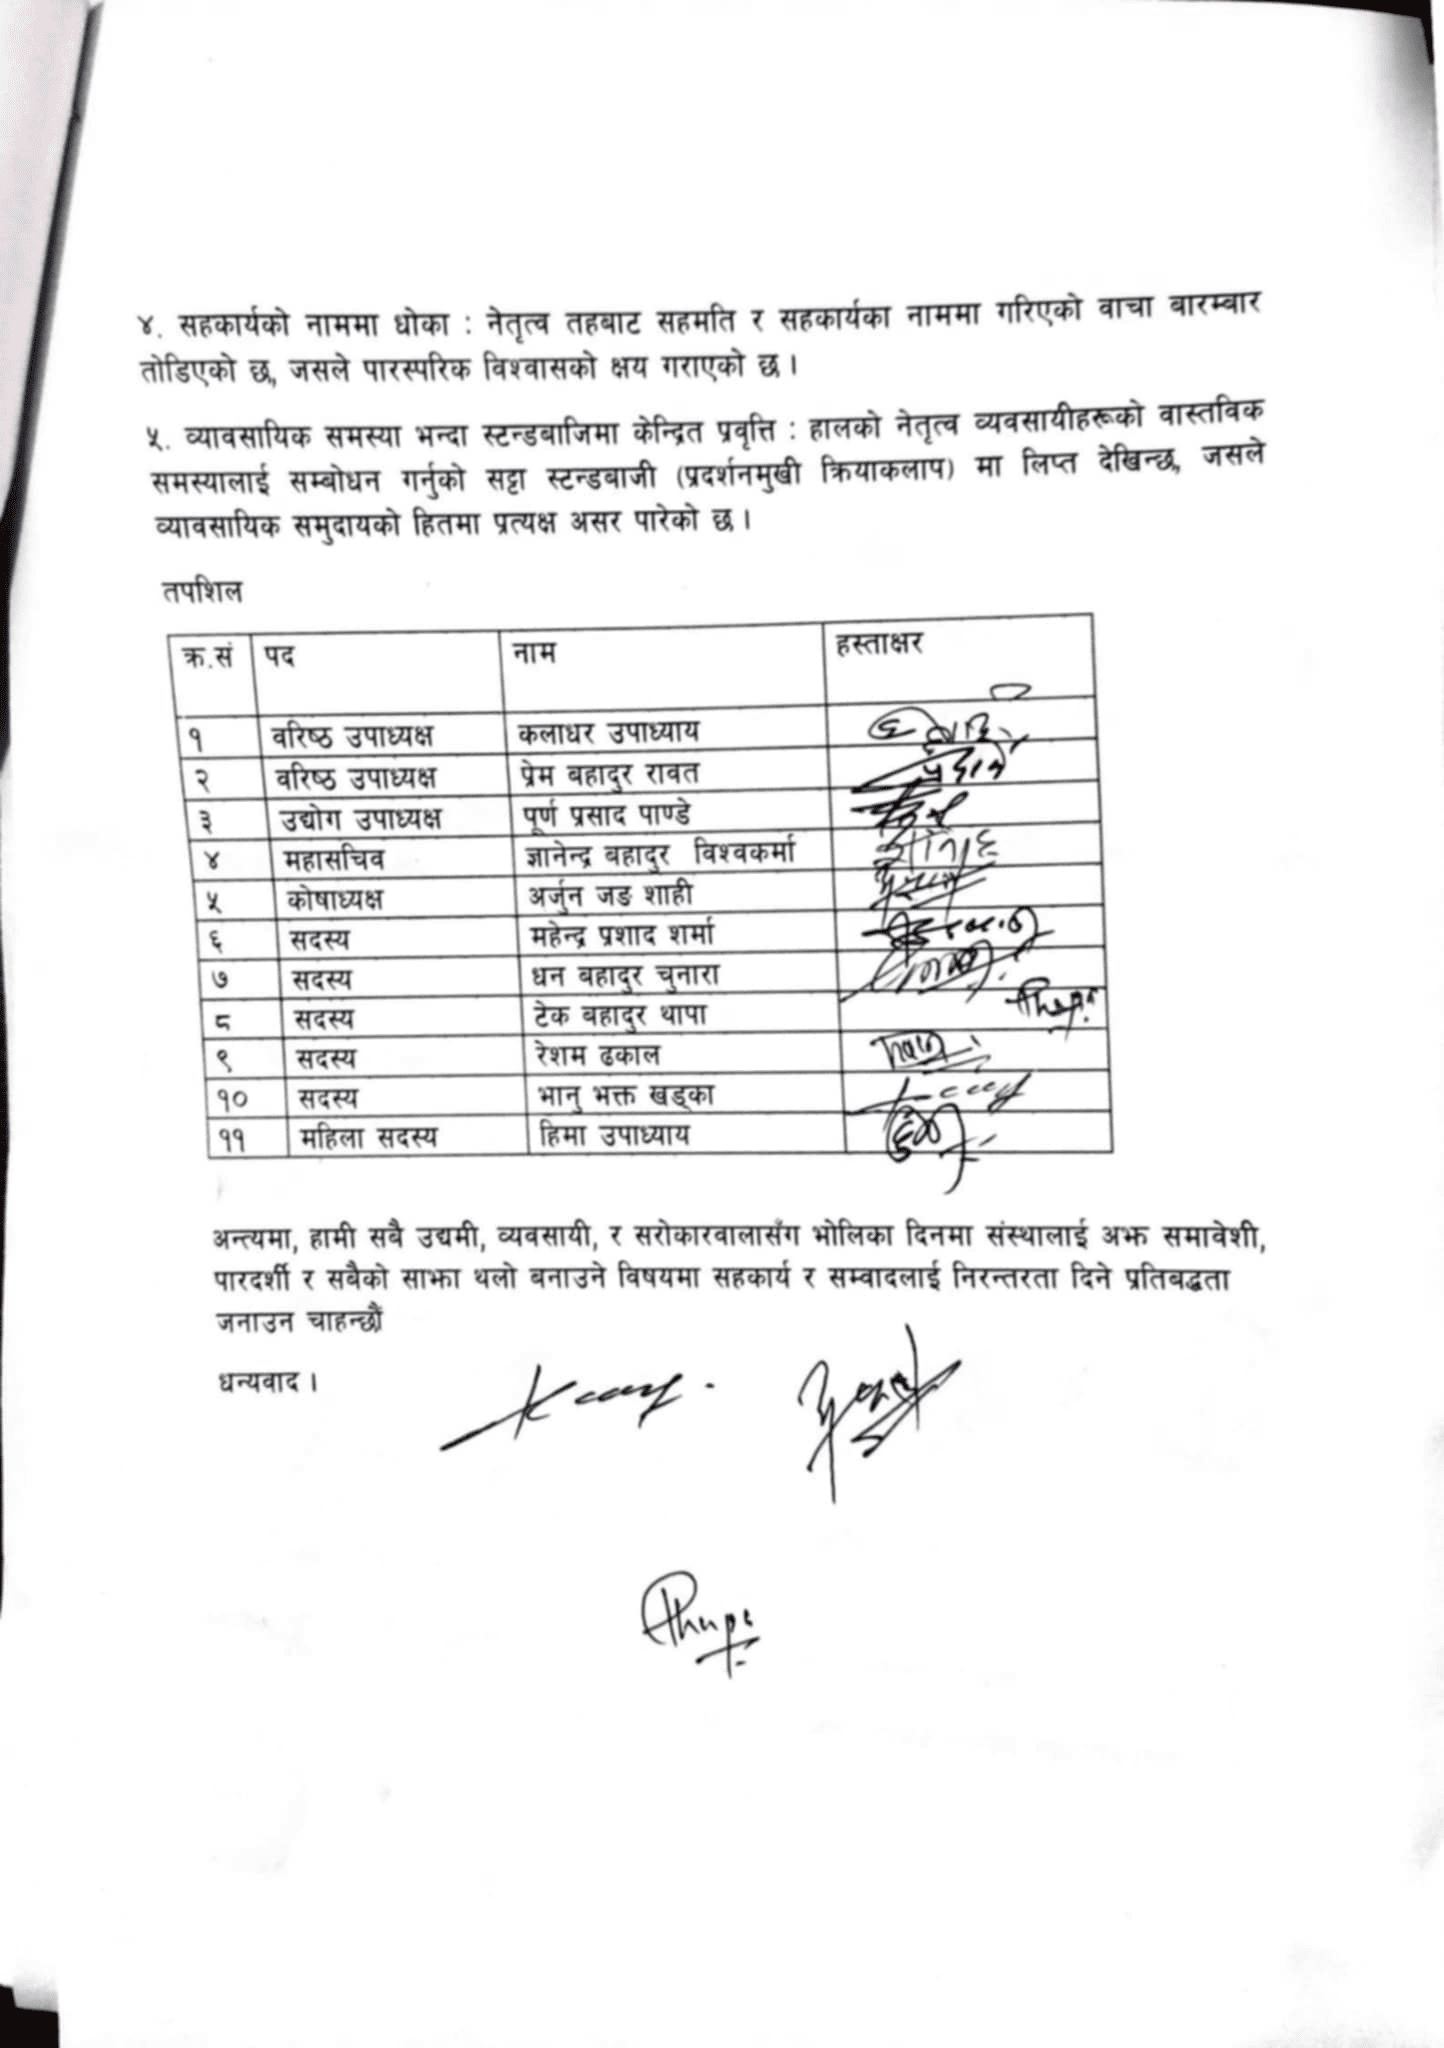 ४. सहकार्यको नाममा धोका : नेतृत्व तहबाट सहमति र सहकार्यका नाममा गरिएको वाचा बारम्बार
तोडिएको छ, जसले पारस्परिक विश्वासको क्षय गराएको छ ।
५. व्यावसायिक समस्या भन्दा स्टन्डबाजिमा केन्द्रित प्रवृत्ति : हालको नेतृत्व व्यवसायीहरूको वास्तविक
समस्यालाई सम्बोधन गर्नुको सट्टा स्टन्डबाजी (प्रदर्शनमुखी क्रियाकलाप) मा लिप्त देखिन्छ, जसले
व्यावसायिक समुदायको हितमा प्रत्यक्ष असर पारेको छ ।
तपशिल
क्र.सं पद नाम हस्ताक्षर
१ वरिष्ठ उपाध्यक्ष कलाधर उपाध्याय
२ वरिष्ठ उपाध्यक्ष प्रेम बहादुर रावत
३ उद्योग उपाध्यक्ष पूर्ण प्रसाद पाण्डे
४ महासचिव ज्ञानेन्द्र बहादुर विश्वकर्मा
५ कोषाध्यक्ष अर्जुन जङ शाही
६ सदस्य महेन्द्र प्रशाद शर्मा
७ सदस्य धन बहादुर चुनारा
८ सदस्य टेक बहादुर थापा
९ सदस्य रेशम ढकाल
१० सदस्य भानु भक्त खड्का
११ महिला सदस्य हिमा उपाध्याय
अन्त्यमा, हामी सबै उद्यमी, व्यवसायी, र सरोकारवालासँग भोलिका दिनमा संस्थालाई अझ समावेशी,
पारदर्शी र सबैको साझा थलो बनाउने विषयमा सहकार्य र सम्वादलाई निरन्तरता दिने प्रतिबद्धता
जनाउन चाहन्छौं
धन्यवाद ।